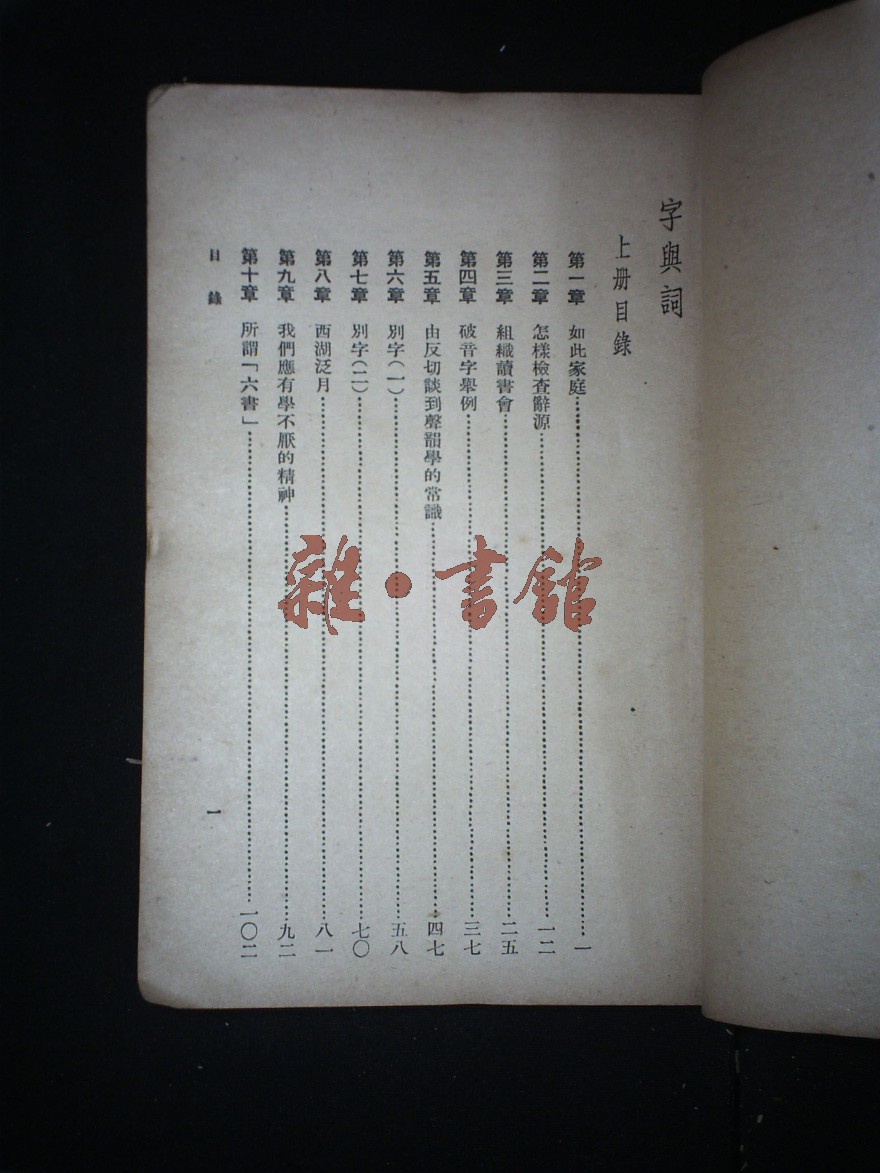 字與詞
上册目錄
第一章 如此家庭……一
第二章 怎樣檢查辭源……一二
第三章 組織讀書會……二五
第四章 破音字舉例……三七
第五章 由反切談到聲韻學的常識……四七
第六章 別字(一)……五八
第七章 別字(二)……七〇
第八章 西湖泛月……八一
第九章 我們應有學不厭的精神……九二
第十章 所謂「六書」……一〇二
目錄 一
雜·書館